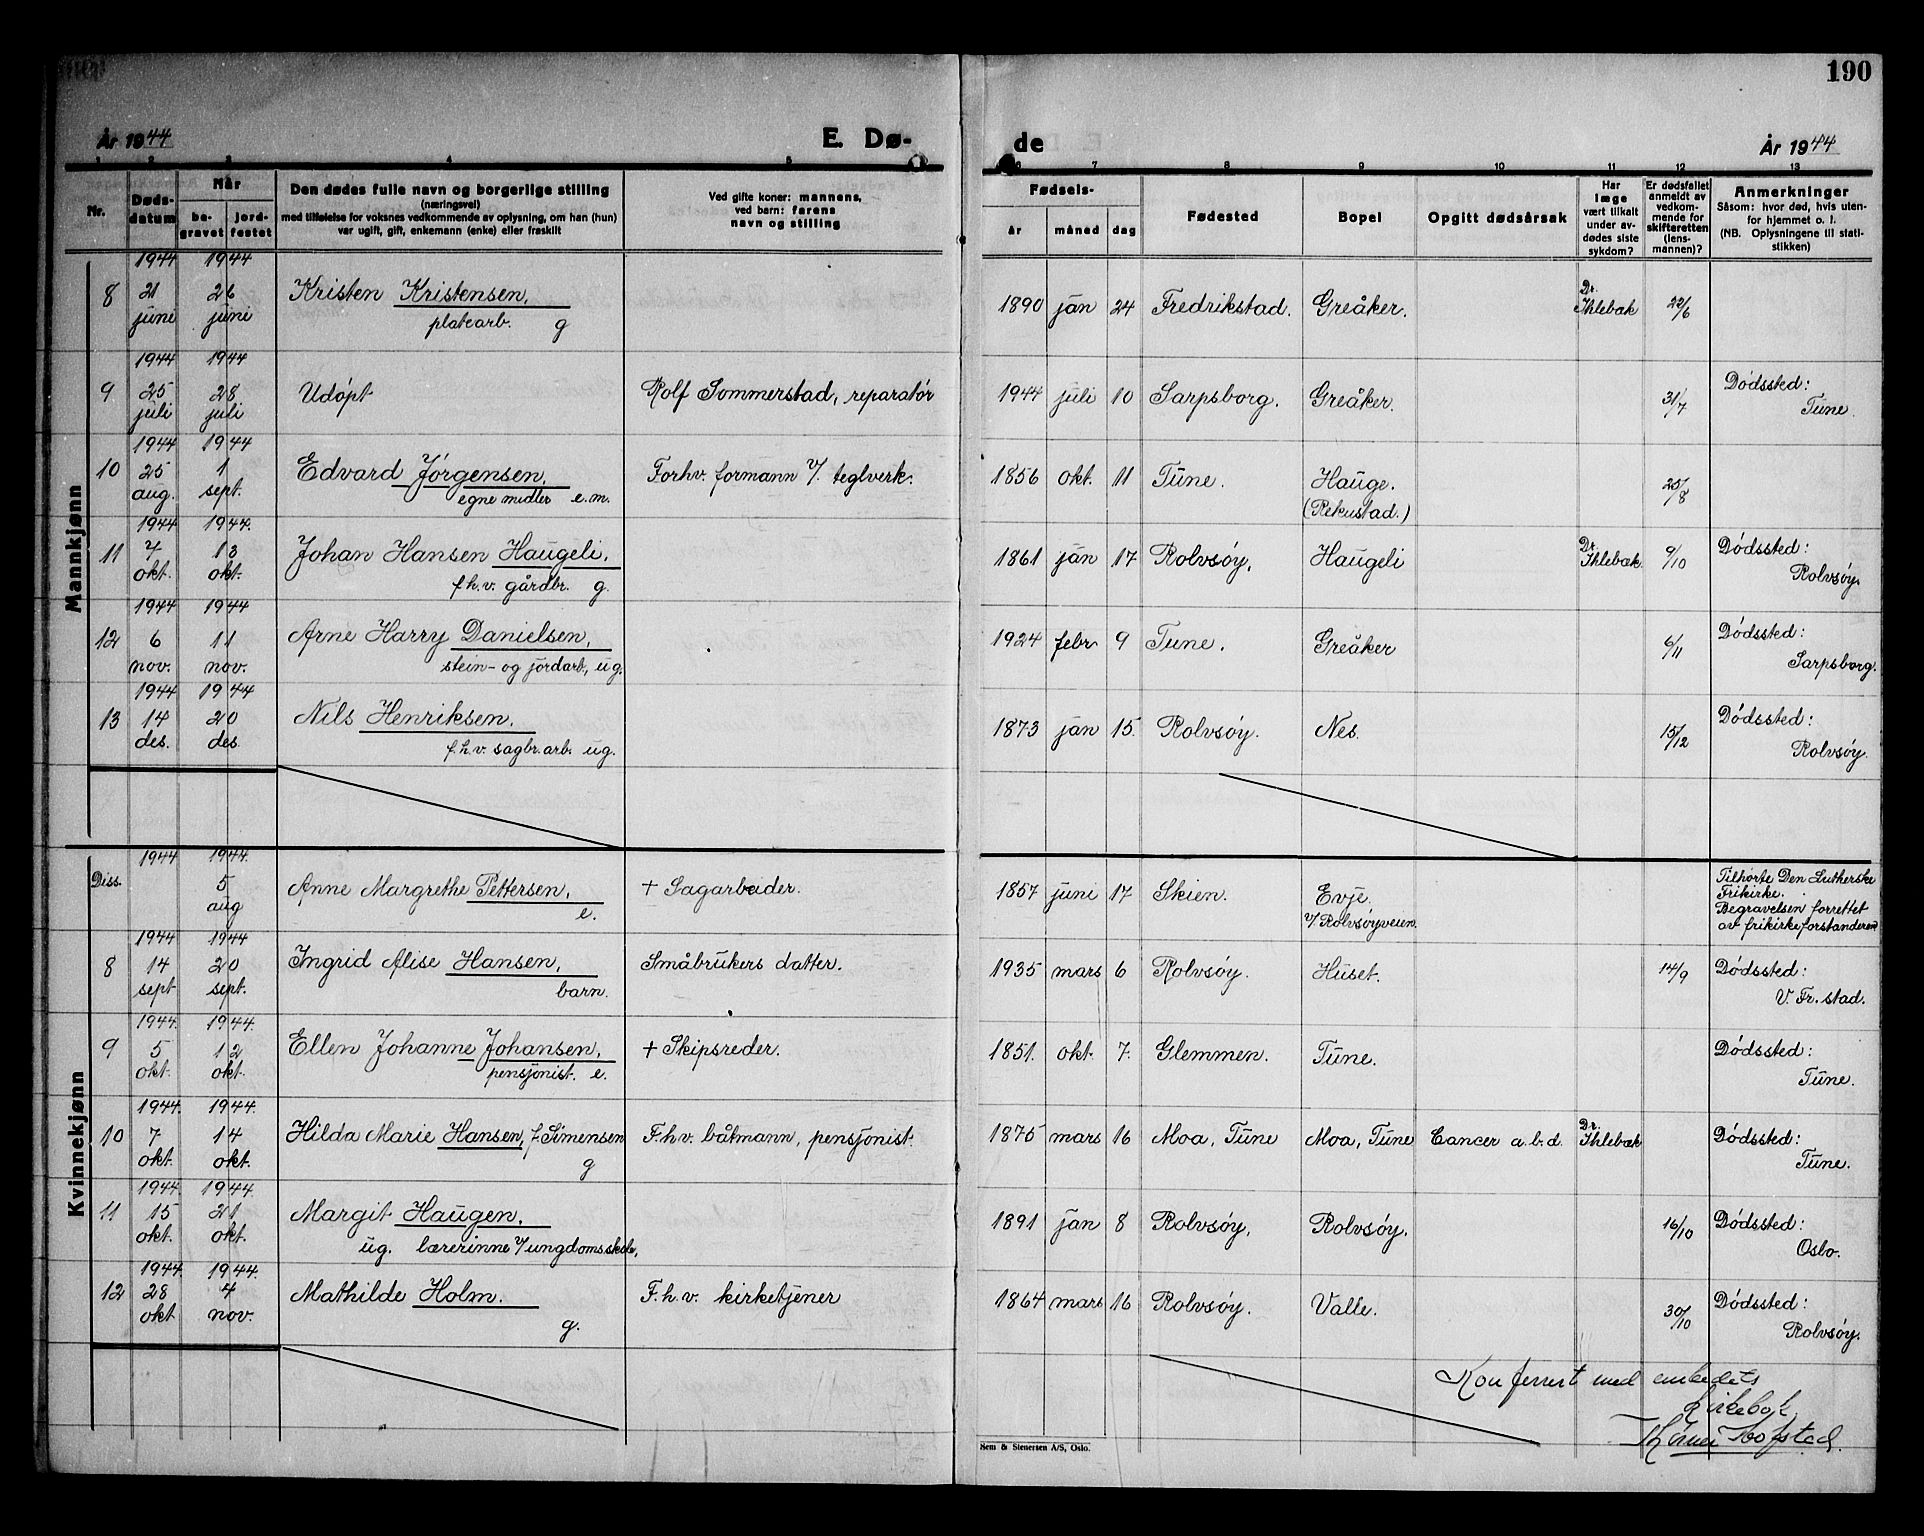 190
År 1944
E. Dø-
de
År 1944
1 2 3 4 5
6 7 8 9 10 11 12 13
Nr.
Døds-
datum
Når
be-
gravet
jord-
festet
Den dødes fulle navn og borgerlige stilling
(næringsvei)
med tilføielse for voksnes vedkommende av oplysning, om han (hun)
var ugift, gift, enkemann (enke) eller fraskilt
Ved gifte koner: mannens,
ved barn: farens
navn og stilling
Fødsels-
år måned dag
Fødested
Bopel
Opgitt dødsårsak
Har
læge
vært tilkalt
under av-
dødes siste
sykdom?
Er dødsfallet
anmeldt av
vedkom-
mende for
skifteretten
(lens-
mannen)?
Anmerkninger
Såsom: hvor død, hvis uten-
for hjemmet o. l.
(NB. Oplysningene til stati-
stikken)
Mannkjønn
1944 1944
8 21 juni 26 juni Kristen Kristensen, platearb. g 1890 jan 24 Fredrikstad. Greåker. Dr. Ihlebæk 22/6
1944 1944
9 25 juli 28 juli Udöpt Rolf Sommerstad, reparatör 1944 juli 10 Sarpsborg. Greåker. 31/7 Dödssted: Tune.
1944 1944
10 25 aug. 1 sept. Edvard Jörgensen, egne midler e.m. Forhv. formann v/. teglverk. 1856 okt. 11 Tune. Hauge. (Rekustad.) 25/8
1944 1944.
11 7 okt. 13 okt. Johan Hansen Haugeli, f.h.v. gårdbr. g. 1861 jan 17 Rolvsöy. Haugeli Dr. Ihlebæk 9/10 Dödssted: Rolvsöy.
1944 1944
12 6 nov. 11 nov. Arne Harry Danielsen, stein- og jordarb., ug. 1924 febr 9 Tune. Greåker 6/11 Dödssted: Sarpsborg.
1944 1944
13 14 des. 20 des. Nils Henriksen. f.h.v. sagbr.arb. ug. 1873 jan 15. Rolvsöy. Nes. 15/12 Dödssted: Rolvsöy.
Kvinnekjønn
1944 1944.
Diss. 5 aug Anne Margrethe Pettersen, e. + Sagarbeider. 1857 juni 17 Skien. Evje. v/ Rolvsöyveien. Tilhörte Den Lutherske
Frikirke.
Begravelsen forrettet
av frikirkeforstanderen
1944 1944
8 14 sept 20 sept. Ingrid Alise Hansen, barn. Småbrukers datter. 1935 mars 6 Rolvsöy. Huset. 14/9 Dödssted: V. Fr. stad.
1944. 1944.
9 5 okt. 12 okt. Ellen Johanne Johansen, pensjonist. e. + Skipsreder. 1851. okt. 7. Glemmen. Tune. Dödssted: Tune.
1944. 1944.
10 7 okt. 14 okt. Hilda Marie Hansen, f. Simensen g F.h.v. båtmann, pensjonist. 1875 mars 16 Moa, Tune Moa, Tune Cancer a.b.d. Dr. Ihlebæk Dödssted: Tune.
1944. 1944.
11 15 okt. 21 okt. Margit Haugen. ug. lærerinne v/ungdomsskole, 1891 jan 8 Rolvsöy. Rolvsöy. 16/10 Dödssted: Oslo.
1944. 1944.
12 28 okt 4 nov. Mathilde Holm. g. F.h.v. kirketjener 1864 mars 16 Rolvsöy. Valle. 30/10 Dödssted: Rolvsöy.
Konferert med embedets
kirkebok
Hofstad.
Sem & Stenersen A/S, Oslo.